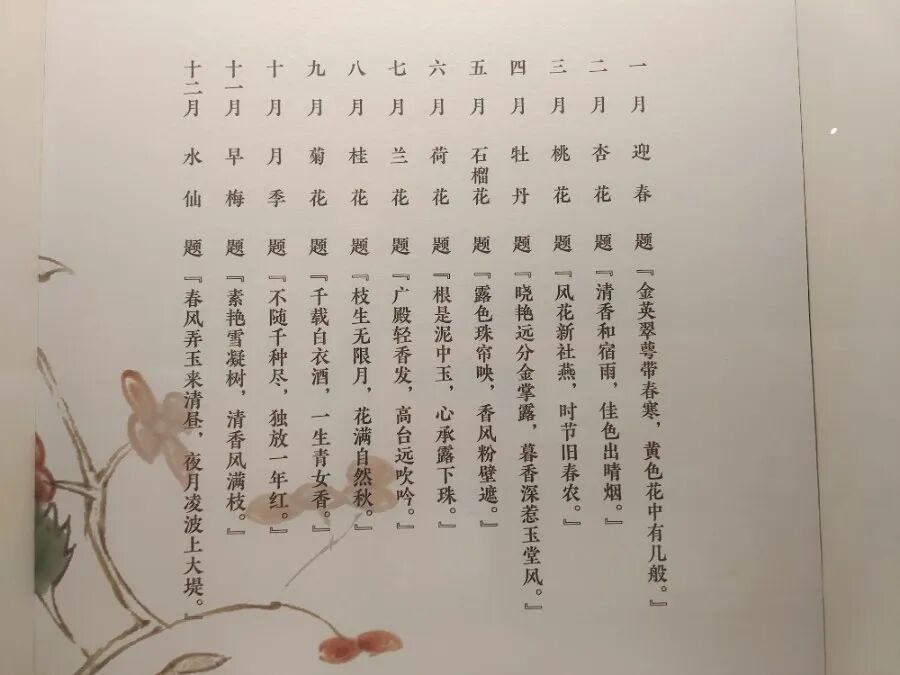 一月 迎春 题『金英翠萼带春寒，黄色花中有几般。』
二月 杏花 题『清香和宿雨，佳色出晴烟。』
三月 桃花 题『风花新社燕，时节旧春农。』
四月 牡丹 题『晓艳远分金掌露，暮香深惹玉堂风。』
五月 石榴花 题『露色珠帘映，香风粉壁遮。』
六月 荷花 题『根是泥中玉，心承露下珠。』
七月 兰花 题『广殿轻香发，高台远吹吟。』
八月 桂花 题『枝生无限月，花满自然秋。』
九月 菊花 题『千载白衣酒，一生青女香。』
十月 月季 题『不随千种尽，独放一年红。』
十一月 早梅 题『素艳雪凝树，清香风满枝。』
十二月 水仙 题『春风弄玉来清昼，夜月凌波上大堤。』